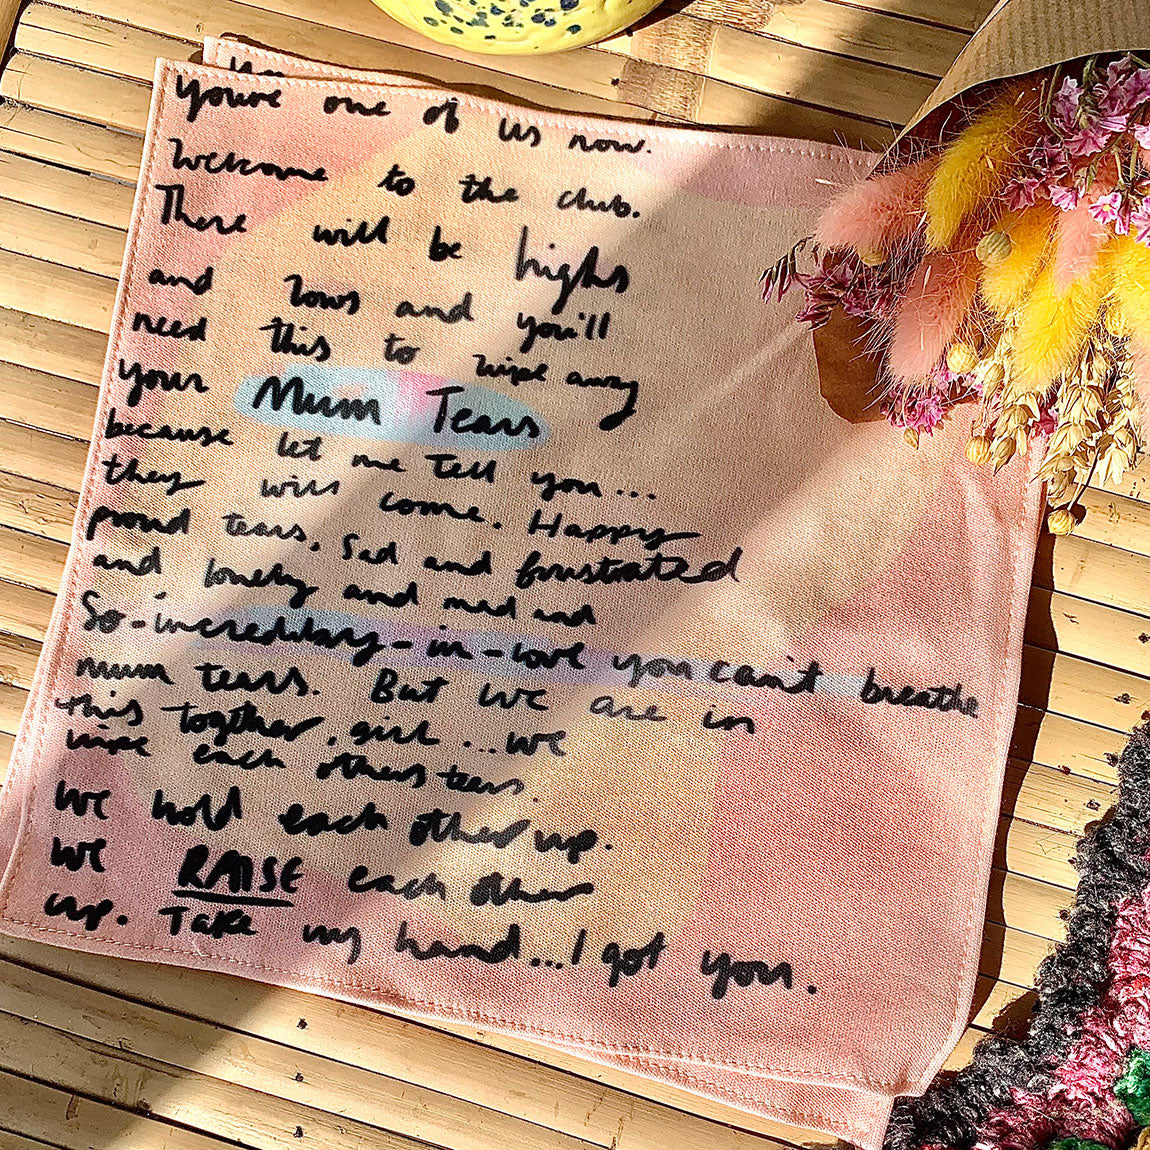 you're one of us now.
Welcome to the club.
There will be highs
and lows and you'll
need this to wipe away
your Mum Tears
because let me tell you...
they will come. Happy
proud tears, Sad and frustrated
and lonely and mad and
So-incredibly-in-love you can't breathe
mum tears. But we are in
this together, girl ...we
wipe each others tears.
We hold each other up.
We RAISE each other
up. Take my hand...I got you.